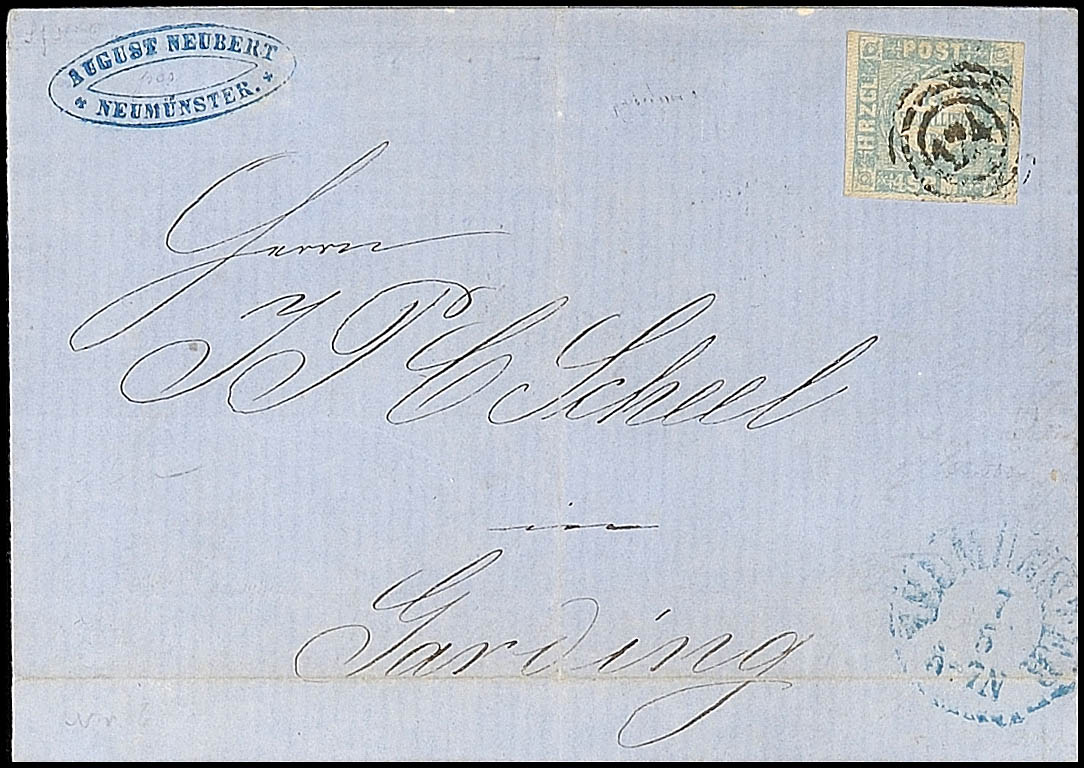 AUGUST NEUBERT
* NEUMÜNSTER. *
POST
HRZGL
124
Herrn
J P C Scheel
in
Garding
NEUMÜNSTER